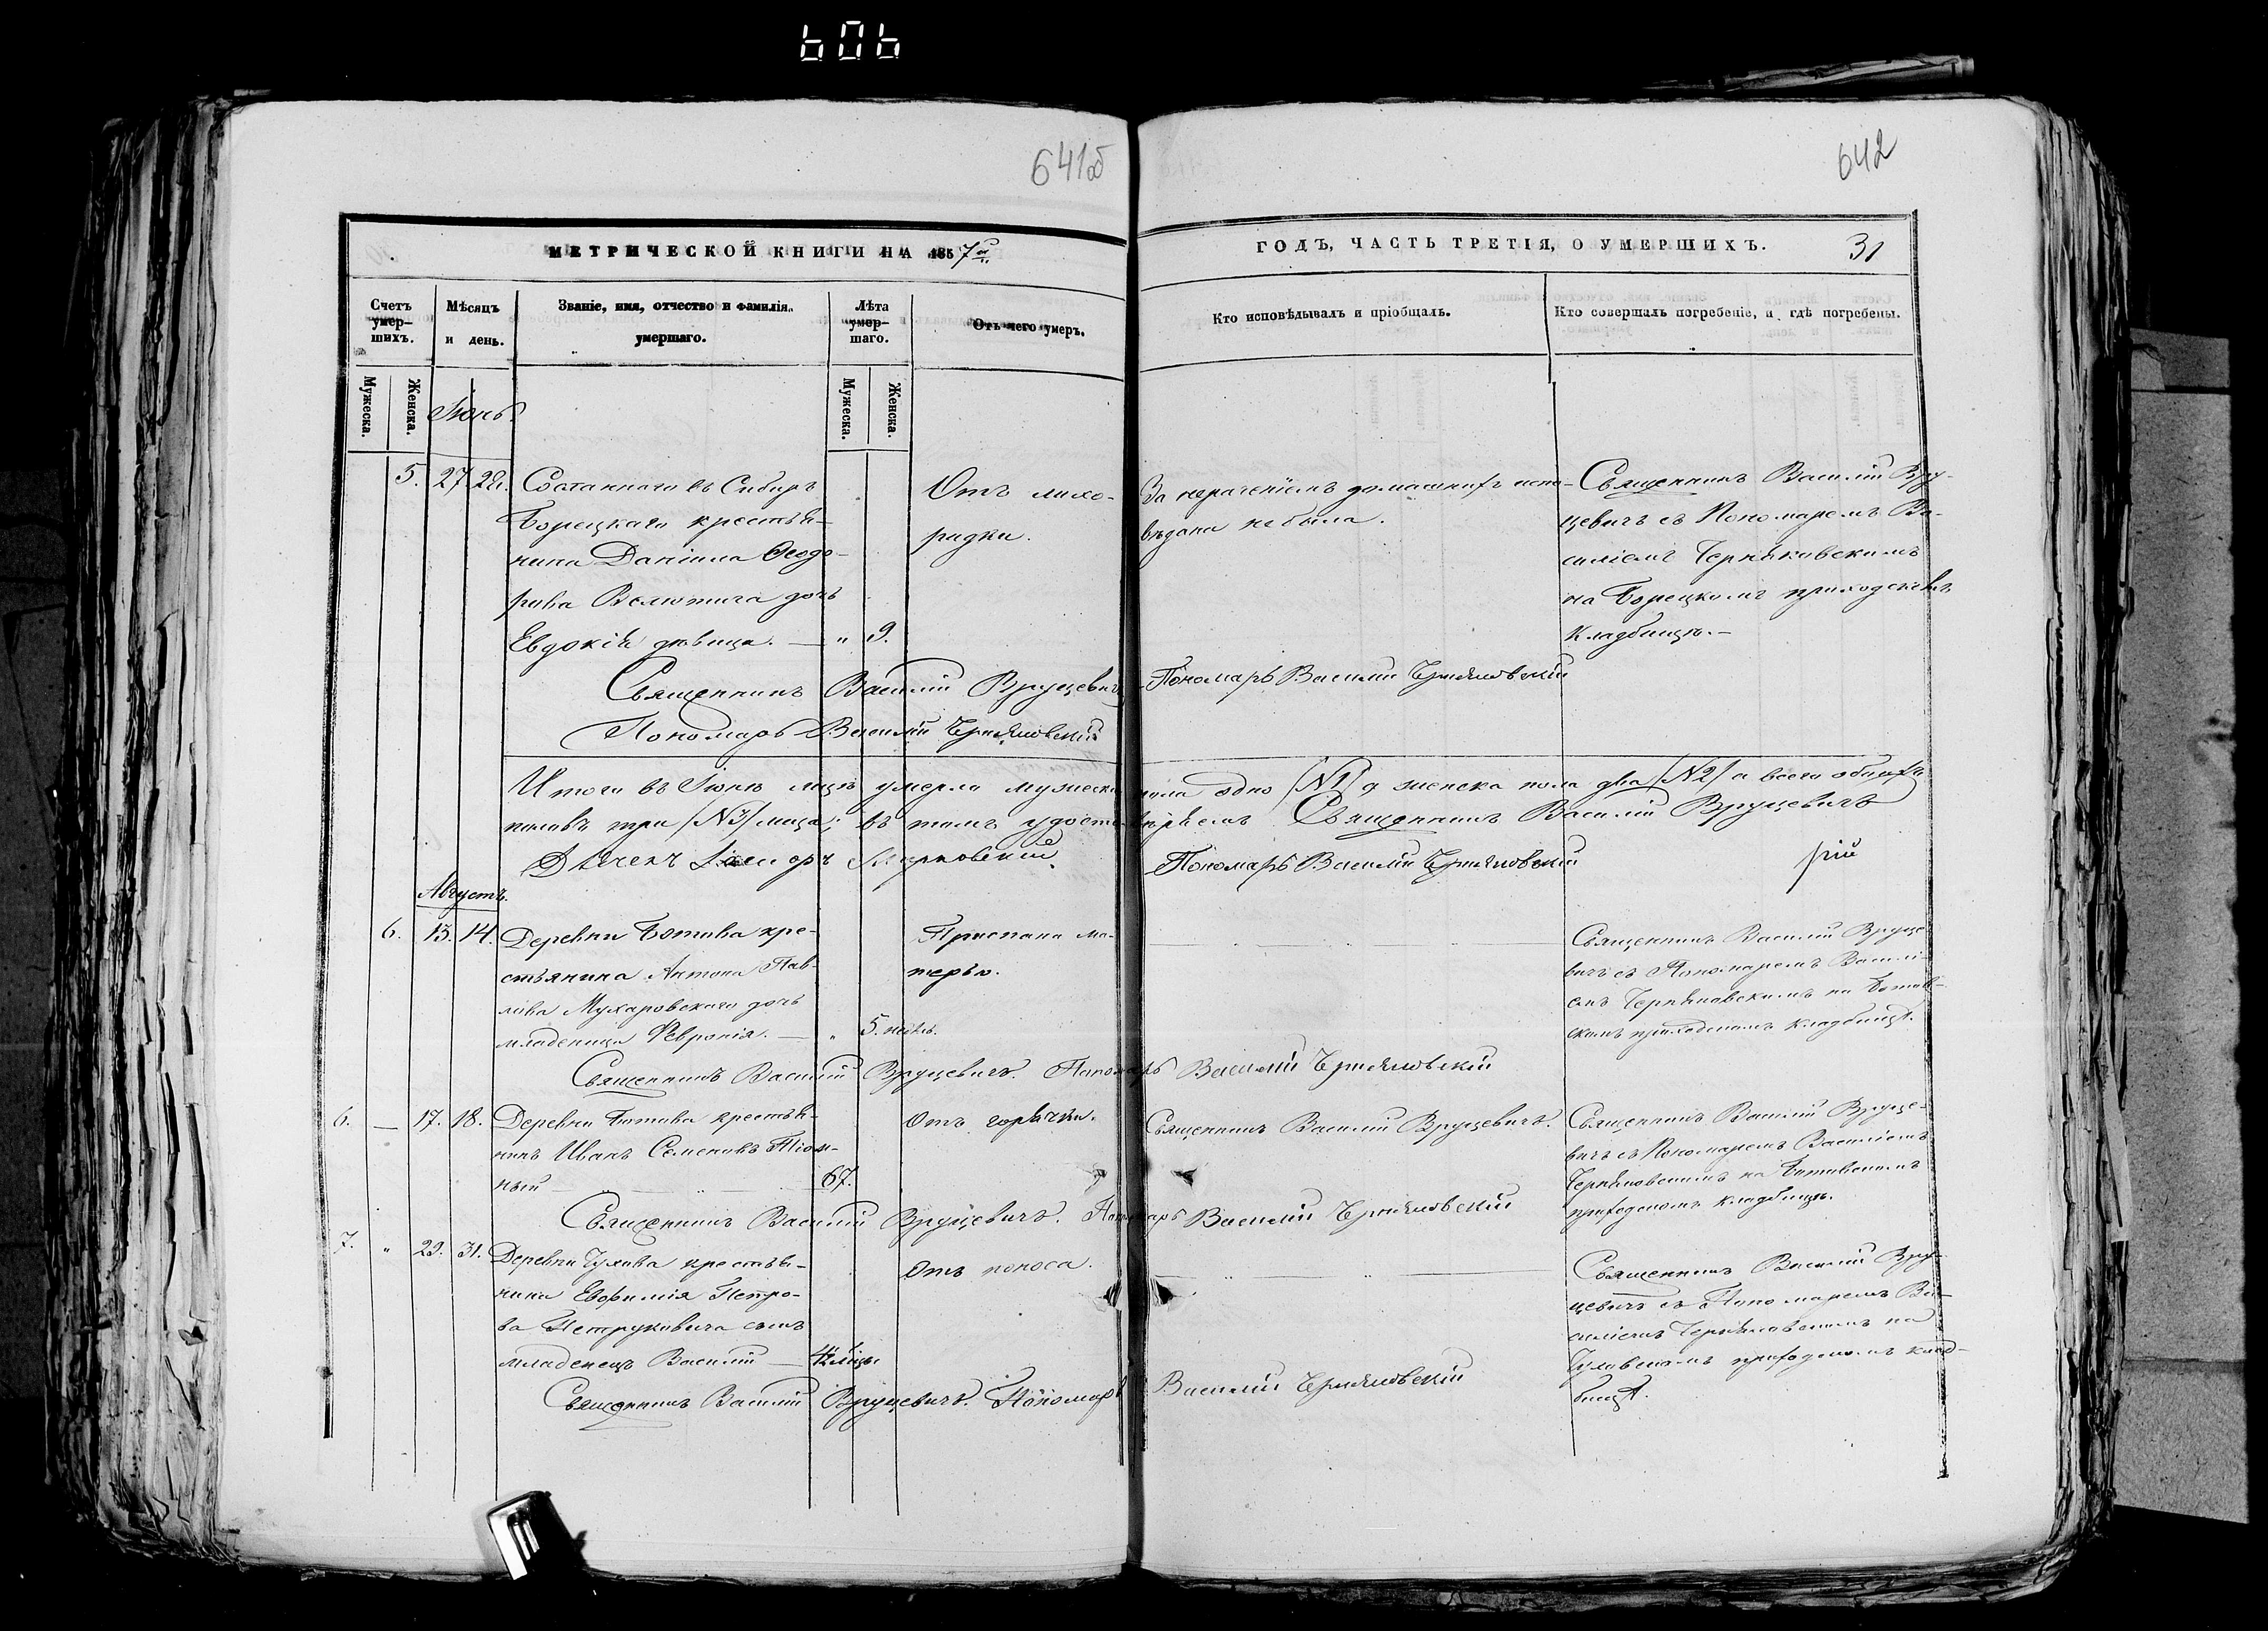 606
641об
642
МЕТРИЧЕСКОЙ КНИГИ НА 1857й
ГОДЪ, ЧАСТЬ ТРЕТІЯ, О УМЕРШИХЪ. 31
Счетъ умер-шихъ.
Мѣсяцъ и день.
Званіе, имя, отчество и фамилія умершаго.
Лѣта умер-шаго.
Отъ чего умеръ.
Кто исповѣдывалъ и пріобщалъ.
Кто совершалъ погребеніе, и гдѣ погребены.
Мужеска.
Женска.
Мужеска.
Женска.
5. 27 28.
Сосланнаго въ Сибирь
Борецкаго крестья-
нина Даніила Ѳеодо-
рова Велютича дочь
Евдокія дѣвица. — " 9.
Отъ лихо-
радки.
За нераченіемъ домашнихъ испо-
вѣдана не была.
Священникъ Василій Вру-
цевичъ съ Пономаремъ Ва-
силіемъ Черняковскимъ
на Борецкомъ приходскомъ
кладбищѣ.—
Священникъ Василій Вруцевичъ
Пономарь Василій Черняковскій
Пономарь Василій Черняковскій
Итого въ Іюлѣ лицъ умерло мужеска пола одно /№1/ а женска пола два /№2/ а всего обоихъ
половъ три /№3/ лица; въ томъ удостовѣряемъ Священникъ Василій Вруцевичъ
Дьячекъ Марковскій
Пономарь Василій Черняковскій
рій
Августъ.
6. 13. 14.
Деревни Ботова кре-
стьянина Антона Пав-
лова Мухаровскаго дочь
младеница Февронія. — " 5. нед.
Приспана ма-
терью.
Священникъ Василій Вруце-
вичъ съ Пономаремъ Василі-
емъ Черняковскимъ на Ботов-
скомъ приходскомъ кладбищѣ.
Священникъ Василій Вруцевичъ. Пономарь Василій Черняковскій
6. — 17. 18.
Деревни Ботова крестья-
нинъ Иванъ Семеновъ
67.
Отъ горячки.
Священникъ Василій Вруцевичъ.
Священникъ Василій Вруце-
вичъ съ Пономаремъ Василіемъ
Черняковскимъ на Ботовскомъ
приходскомъ кладбищѣ.
Священникъ Василій Вруцевичъ. Пономарь Василій Черняковскій
7. " 29. 31.
Деревни крестья-
нина Евфимія Петро-
ва Петруковича сынъ
младенецъ Василій —
Отъ поноса.
Священникъ Василій Вру-
цевичъ съ Пономаремъ Ва-
силіемъ Черняковскимъ на
приходскомъ клад-
бищѣ.
Священникъ Василій Вруцевичъ. Пономарь Василій Черняковскій